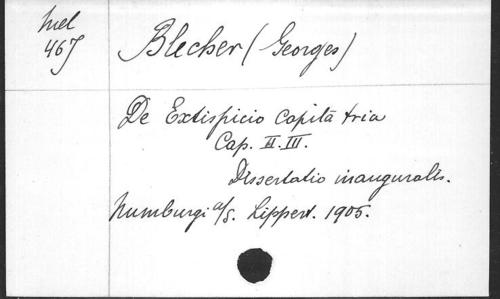 Mel
467
Blecher (Georges)
De Extispicio Capita tria
Cap. II. III.
Dissertatio inauguralis.
Numburgi a/S. Lippert. 1905.